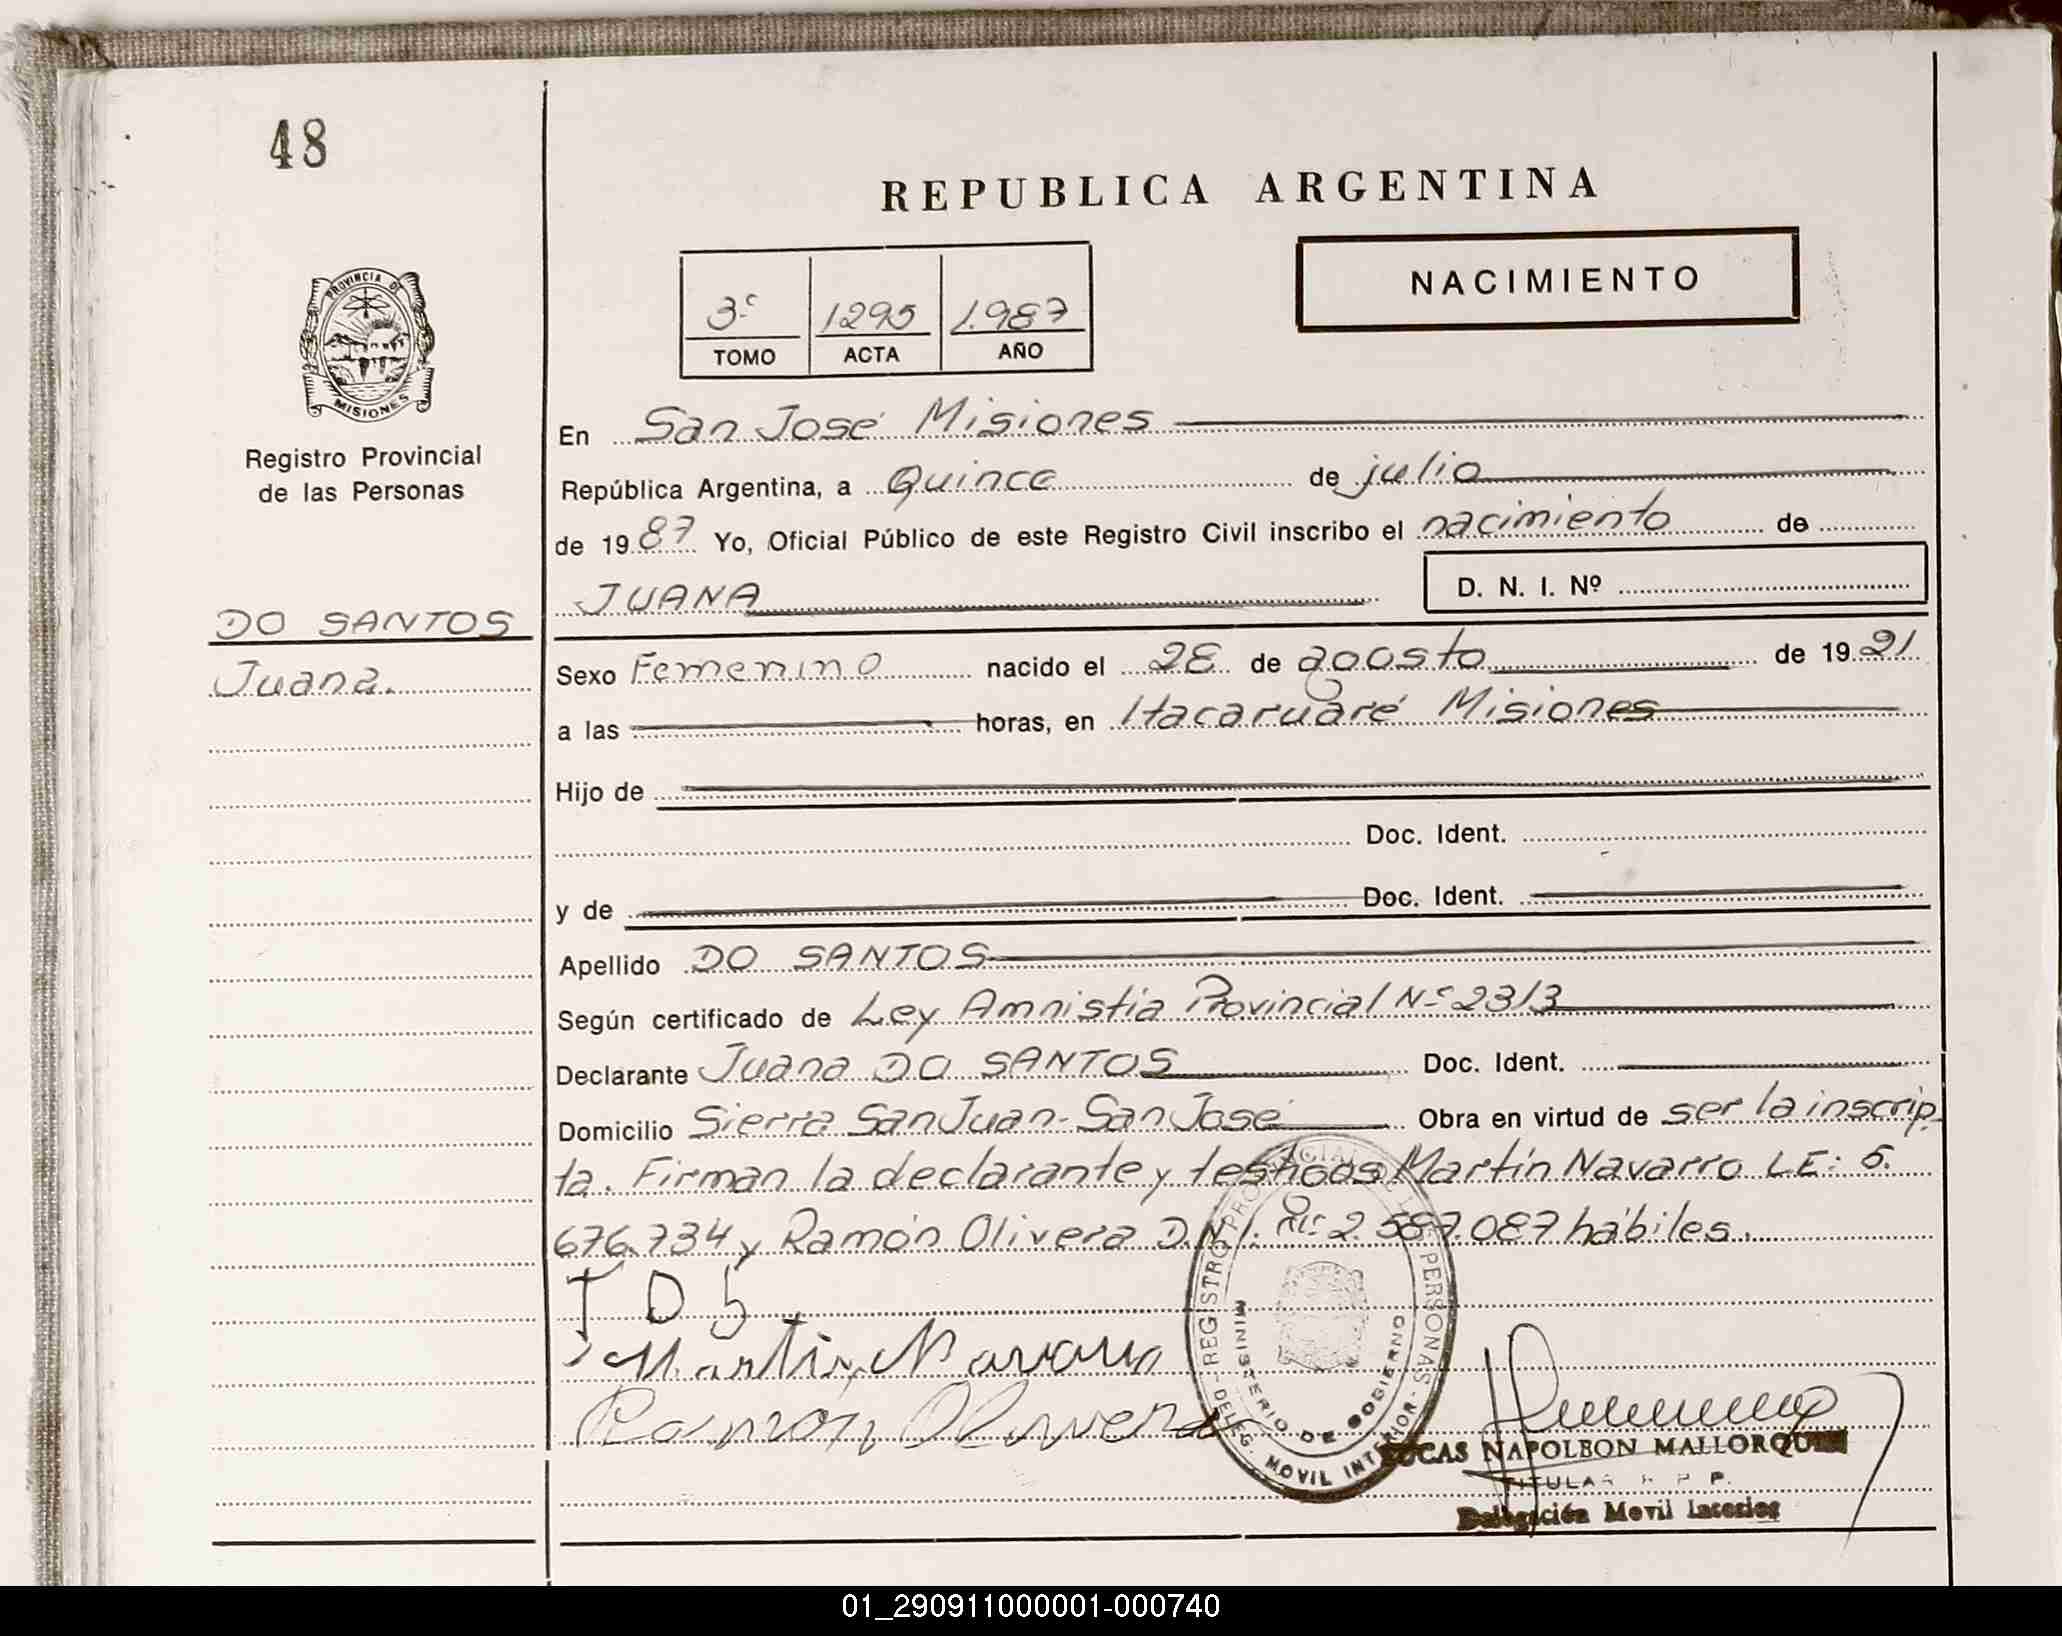 48
REPUBLICA ARGENTINA
NACIMIENTO
3º 1295 1.987
TOMO ACTA AÑO
PROVINCIA DE
MISIONES
Registro Provincial
de las Personas
DO SANTOS
Juana.
En San José Misiones
República Argentina, a Quince de julio
de 1987 Yo, Oficial Público de este Registro Civil inscribo el nacimiento de
JUANA D. N. I. Nº
Sexo Femenino nacido el 28 de agosto de 1921
a las horas, en Itacaruaré Misiones
Hijo de
Doc. Ident.
y de Doc. Ident.
Apellido DO SANTOS
Según certificado de Ley Amnistia Provincial Nº 2313
Declarante Juana DO SANTOS Doc. Ident.
Domicilio Sierra San Juan - San José Obra en virtud de ser la inscrip-
ta. Firman la declarante y testigos Martín Navarro LE: 5.
676.734 y Ramón Olivera D.N.I. Nº 2.587.087 hábiles.
J D S
Martin Navarro
Ramón Olivera
REGISTRO PROVINCIAL DE LAS PERSONAS
MINISTERIO DE GOBIERNO
DELEG. MOVIL INTERIOR
LUCAS NAPOLEON MALLORQUIN
TITULAR R. P. P.
Delegación Movil Interior
01_290911000001-000740